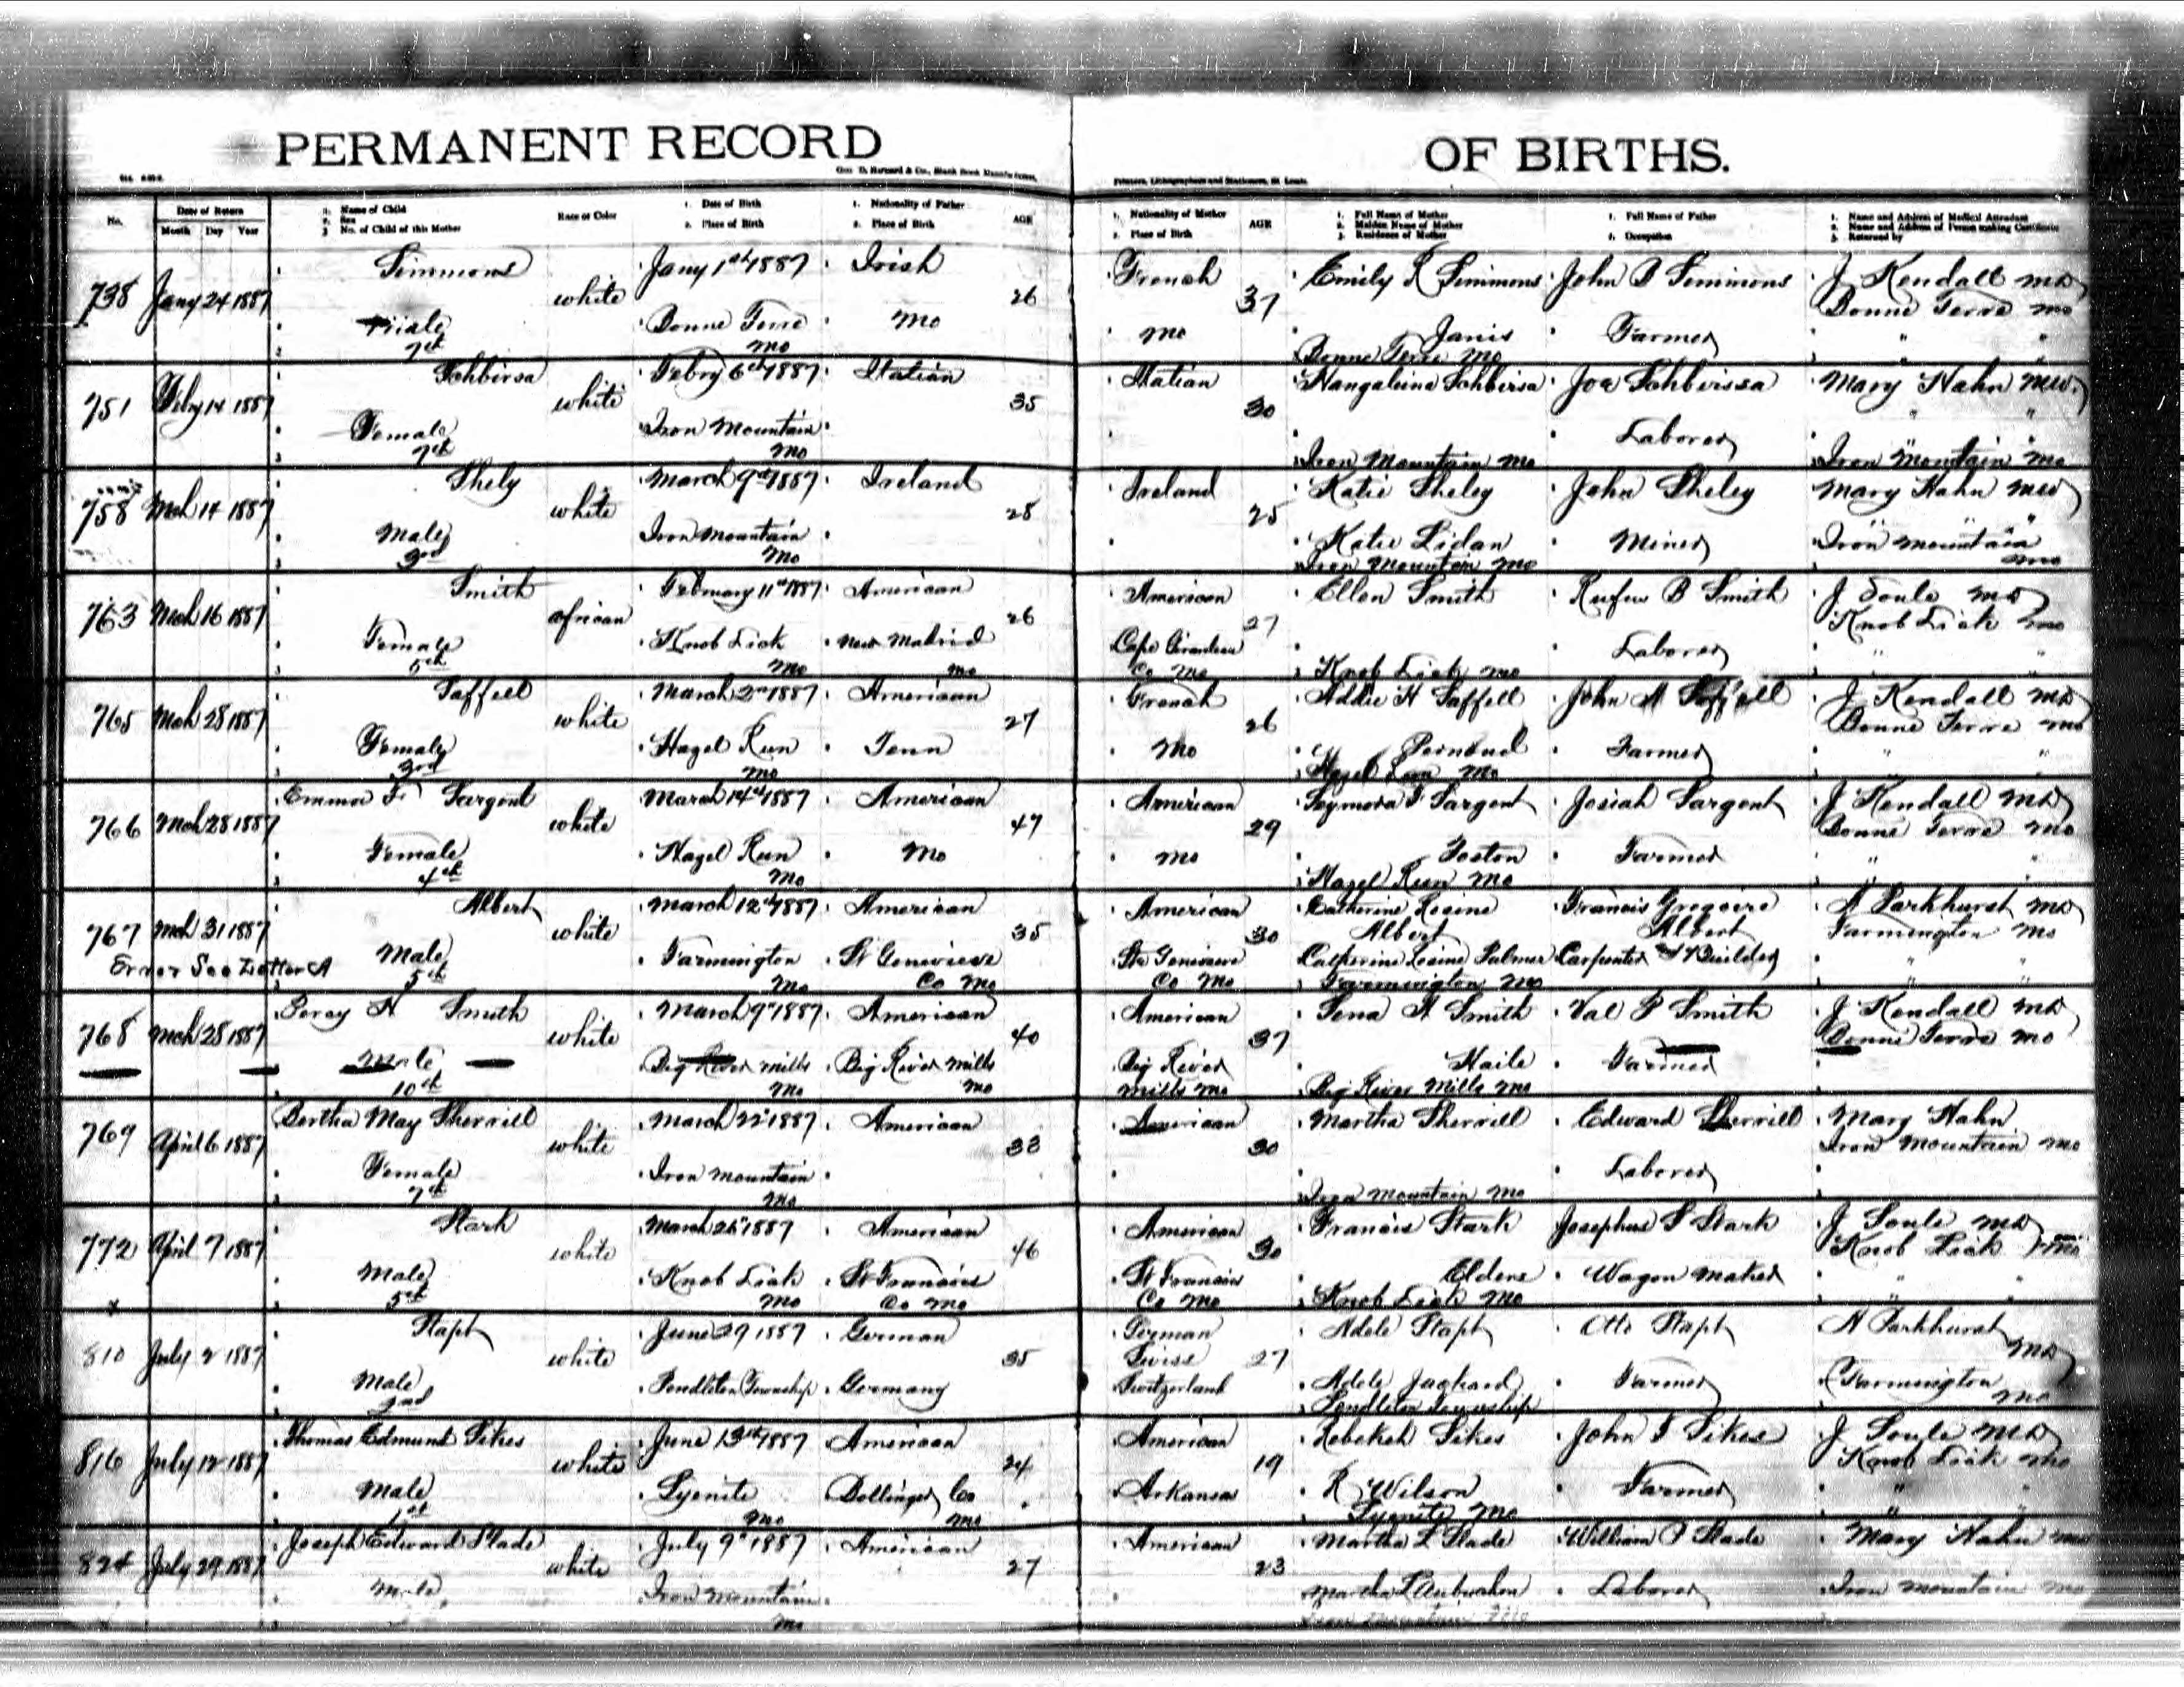 PERMANENT RECORD OF BIRTHS.
Geo. D. Barnard & Co., Blank Book Manufacturers,
Printers, Lithographers and Stationers, St. Louis.
No.
Date of Return
Month Day Year
1. Name of Child
2. Sex
3. No. of Child of this Mother
Race or Color
1. Date of Birth
2. Place of Birth
1. Nationality of Father
2. Place of Birth
AGE
1. Nationality of Mother
2. Place of Birth
AGE
1. Full Name of Mother
2. Maiden Name of Mother
3. Residence of Mother
1. Full Name of Father
2. Occupation
1. Name and Address of Medical Attendant
2. Name and Address of Person making Certificate
3. Returned by
Simmons Jany 1st 1887 Irish French Emily R Simmons John B Simmons J Kendall MD
738 Jany 24 1887 white 26 37 Bonne Terre Mo
Male Bonne Terre Mo Mo Janis Farmer " "
7th Mo Bonne Terre Mo
Febry 6th 1887 Italian Italian Mary Hahn
751 Feby 14 1887 white 35 30 " "
Female Iron Mountain Laborer
7th Mo Iron Mountain Mo Iron Mountain Mo
Shely March 9th 1887 Ireland Ireland Katie Sheley John Sheley Mary Hahn
758 Mch 14 1887 white 28 25
Male Iron Mountain Katie Miner Iron Mountain
3rd Mo Iron Mountain Mo Mo
Smith February 11th 1887 American American Ellen Smith Rufus B Smith J Soule MD
763 Mch 16 1887 african 26 27 Knob Lick Mo
Female Knob Lick New Madrid Cape Girardeau Laborer " "
5th Mo Mo Co Mo Knob Lick Mo
Saffell March 2nd 1887 American French Addie H Saffell John Saffell J Kendall MD
765 Mch 28 1887 white 27 26 Bonne Terre Mo
Female Hazel Run Tenn Mo Farmer " "
3rd Mo Hazel Run Mo
Emma F Sargent March 14th 1887 American American Sargent Josiah Sargent J Kendall MD
766 Mch 28 1887 white 47 29 Bonne Terre Mo
Female Hazel Run Mo Mo Farmer " "
4th Mo Hazel Run Mo
Albert March 12th 1887 American American Catherine Rosine Francis Gregoire A Parkhurst MD
767 Mch 31 1887 white 35 30 Albert Albert Farmington Mo
Error See Letter A Male Farmington St Genevieve Ste Genevieve Catherine Rosine Palmer Carpenter & Builder " "
5th Mo Co Mo Co Mo Farmington Mo
Percy A Smith March 9th 1887 American American Lena A Smith Val P Smith J Kendall MD
768 Mch 28 1887 white 40 37 Bonne Terre Mo
Male Big River Mills Big River Mills Big River Haile Farmer
10th Mo Mo Mills Mo Big River Mills Mo
Bertha May Sherrill March 22 1887 American American Martha Sherrill Edward Sherrill Mary Hahn
769 April 6 1887 white 33 30 Iron Mountain Mo
Female Iron Mountain Laborer
7th Mo Iron Mountain Mo
Stark March 26 1887 American American Francis Stark Josephus S Stark J Soule MD
772 April 7 1887 white 46 30 Knob Lick Mo
Male Knob Lick St Francois St Francois Wagon Maker " "
x 5th Mo Co Mo Co Mo Knob Lick Mo
Stapt June 29 1887 German German Adele Stapt Otto Stapt A Parkhurst
810 July 2 1887 white 35 Swiss 27 MD
Male Pendleton Township Germany Switzerland Adele Farmer Farmington
2nd Pendleton Township Mo
Thomas Edmund Sikes June 13th 1887 American American Rebekeh Sikes John Sikes J Soule MD
816 July 12 1887 white 24 19 Knob Lick Mo
Male Syenite Bollinger Co Arkansas R Wilson Farmer " "
1st Mo Mo Syenite Mo
Joseph Edward Slade July 9th 1887 American American Martha L Slade William Slade Mary Hahn
824 July 29 1887 white 27 23
Male Iron Mountain Martha L Laborer Iron Mountain Mo
Mo Iron Mountain Mo